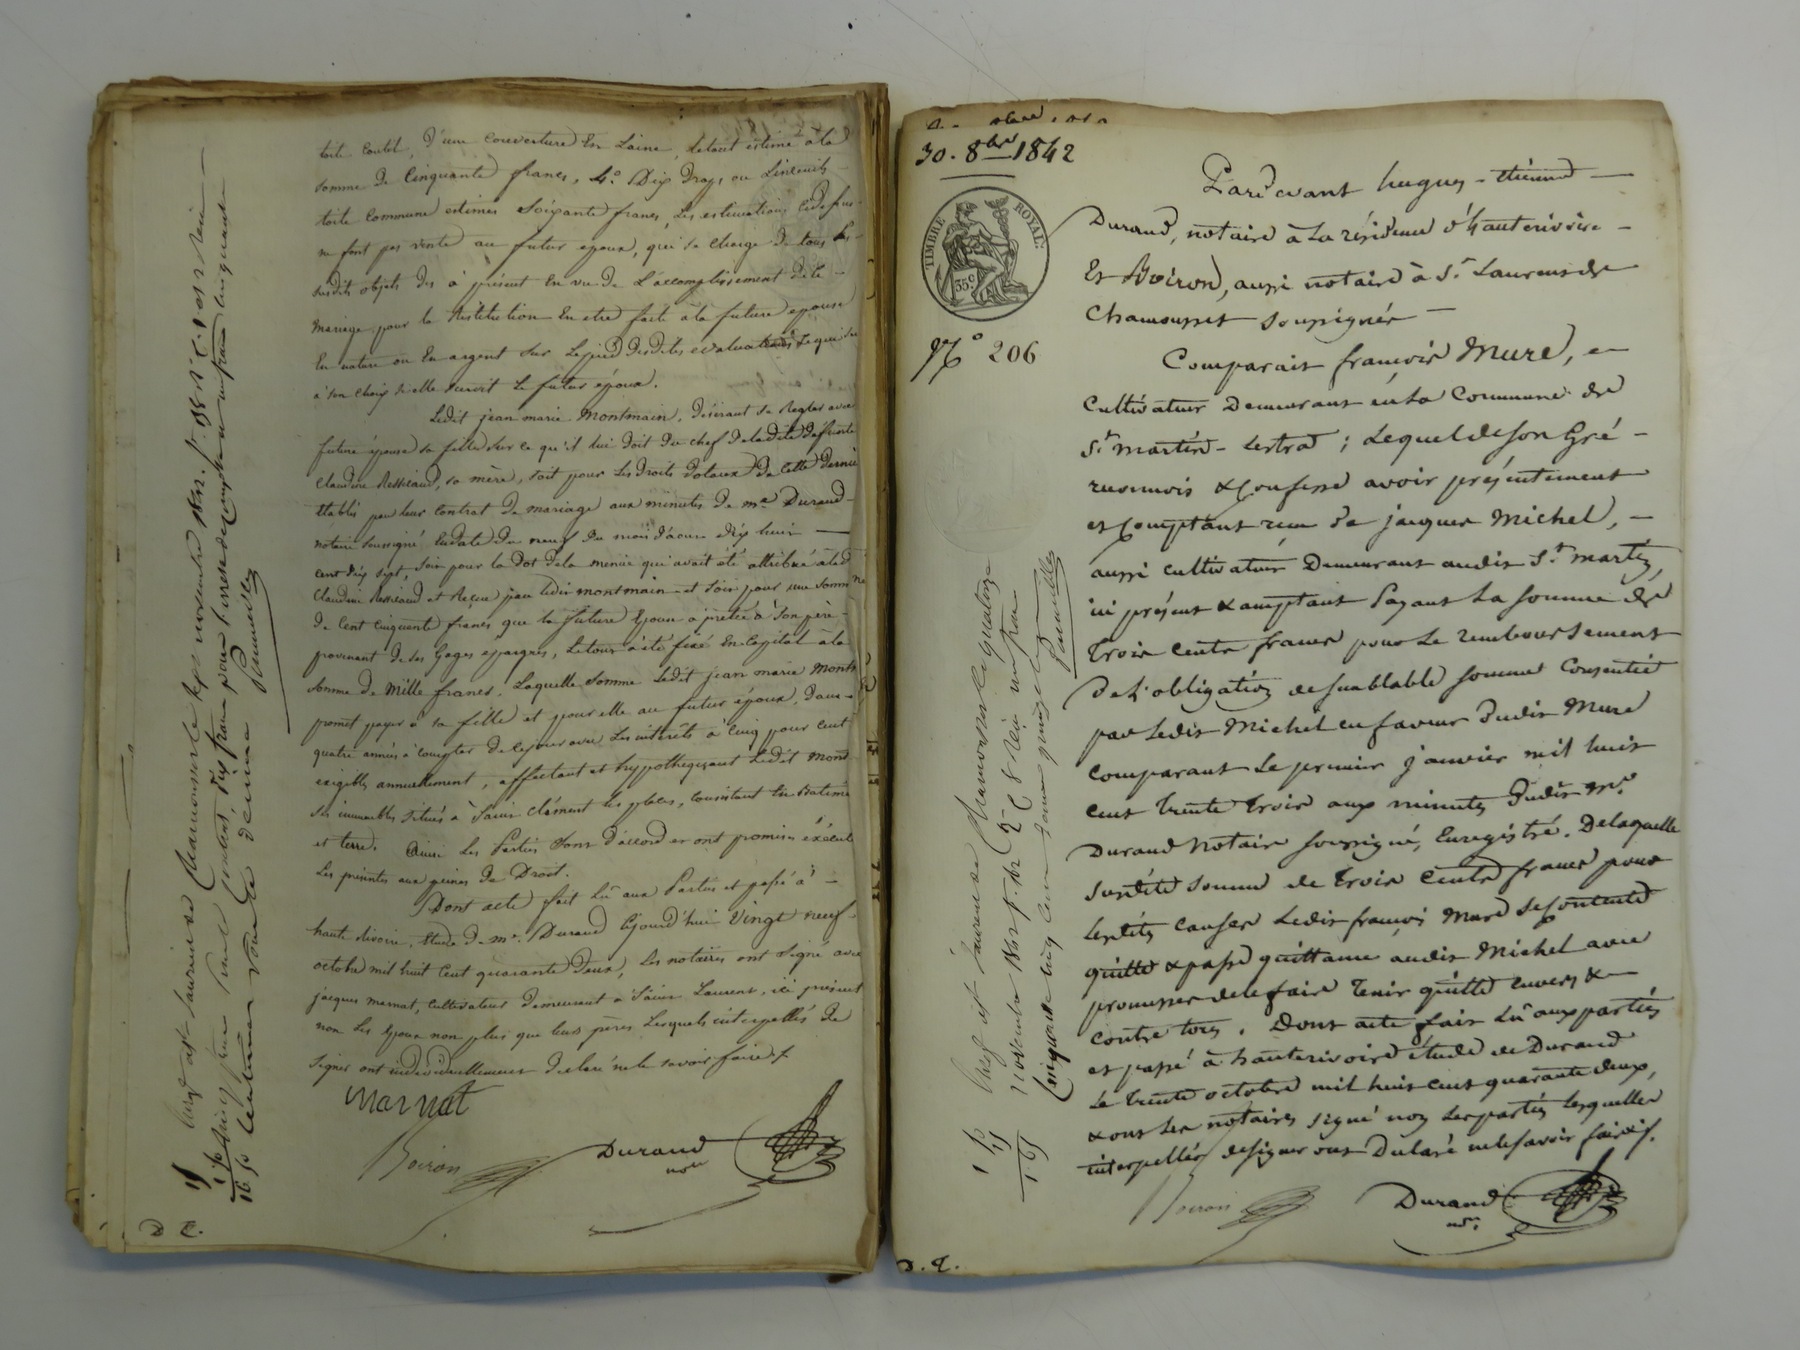 toile coutil, d'une couverture en Laine, le tout estimé à la
somme de Cinquante francs, 4.° Dix Draps ou Linceuils
toile commune estimés Soixante francs, Les estimations cidessus
ne font pas vente au futur époux, qui se charge de tous les
susdits objets dès à présent en vue de L'accomplissement dele
mariage pour la Restitution en etre fait à la future epouse
En nature ou En argent sur Le pied desdites evaluations Ce qui sera
à son choix si elle survit Le futur époux.
Ledit jean marie Montmain, desirant se Regler avec
future épouse sa fille sur ce qu'il lui doit du chef de ladite deffunte
Claudine Resseaud, sa mère, soit pour Les Droits dotaux de Cette dernière
établis par leur Contrat de mariage aux minutes de me Durand
notaire soussigné En date du neuf du mois d'aout Dix huit
cent dix sept, soit pour la Dot de la meme qui avait été attribué à lad
Claudine Resseaud et Reçue par ledit montmain et Soit pour une Somme
de Cent Cinquante francs que la future Epouse a pretée à Son père
provenant de Ses Gages epargnes, Le tout a été fixé En Capital à la
somme de Mille francs. Laquelle Somme Ledit jean marie Montm
promet payer à sa fille et pour elle au futur époux, Dans
quatre années à Compter de Ce jour avec Les intérêts à Cinq pour cent
exigibles annuellement, affectant et hypothequant Ledit Mont
ses immeubles situés à Saint Clément les places, Consistant En Batimé
et terre. Ainsi Les Parties Sont d'accord et ont promis éxécut
Les présentes aux peines de Droit.
Dont acte fait Lû aux Parties et passé à
haute Rivoire, Etude de me. Durand Cejourd'hui Vingt neuf
octobre mil huit Cent quarante Deux, Les notaires ont Signé avec
jacques marnat, Cultivateur demeurant à Saint Laurent, ici présent
non Les Epoux non plus que leurs pères Lesquels interpellés de
Signer ont individuellement declaré ne le savoir faire.
Marnat
Boiron
Durand
nore
D E.
Chamousset le sept novembre 1842.
30. 8bre 1842
TIMBRE ROYAL
35c
N° 206
Pardevant hugues-etienne
Durand, notaire à La résidence d'hauterivoire
Et Boiron, aussi notaire à St Laurent de
Chamousset soussignés
Comparait françois Mure,
Cultivateur Demeurant en la Commune de
St Martin-Lestrad; Lequel de son Gré
reconnois & Confesse avoir présentement
et Comptant reçu de jacques Michel,
aussi cultivateur Demeurant audit St martin,
ici présent & acceptant Payant La somme de
Trois Cents francs pour Le remboursement
De L'obligation de semblable somme Consentie
par Ledit Michel en faveur Dudit Mure
comparant Le premier janvier mil huit
cent trente trois aux minutes Dudit Me.
Durand Notaire soussigné, Enregistré. De laquelle
susdite somme de trois Cents francs pour
lesdites causes Ledit françois Mure Se Contente
quitte & passe quittance audit Michel avec
promesse de le faire tenir quitte envers &
contre tous. Dont acte fait Lû aux parties
et passé à hauterivoire étude de Durand
Le trente octobre mil huit cent quarante deux,
& ont Les notaires signé non Les parties Lesquelles
interpellées de signer ont Declaré ne le savoir faire.
Boiron
Durand
nore
D. E.